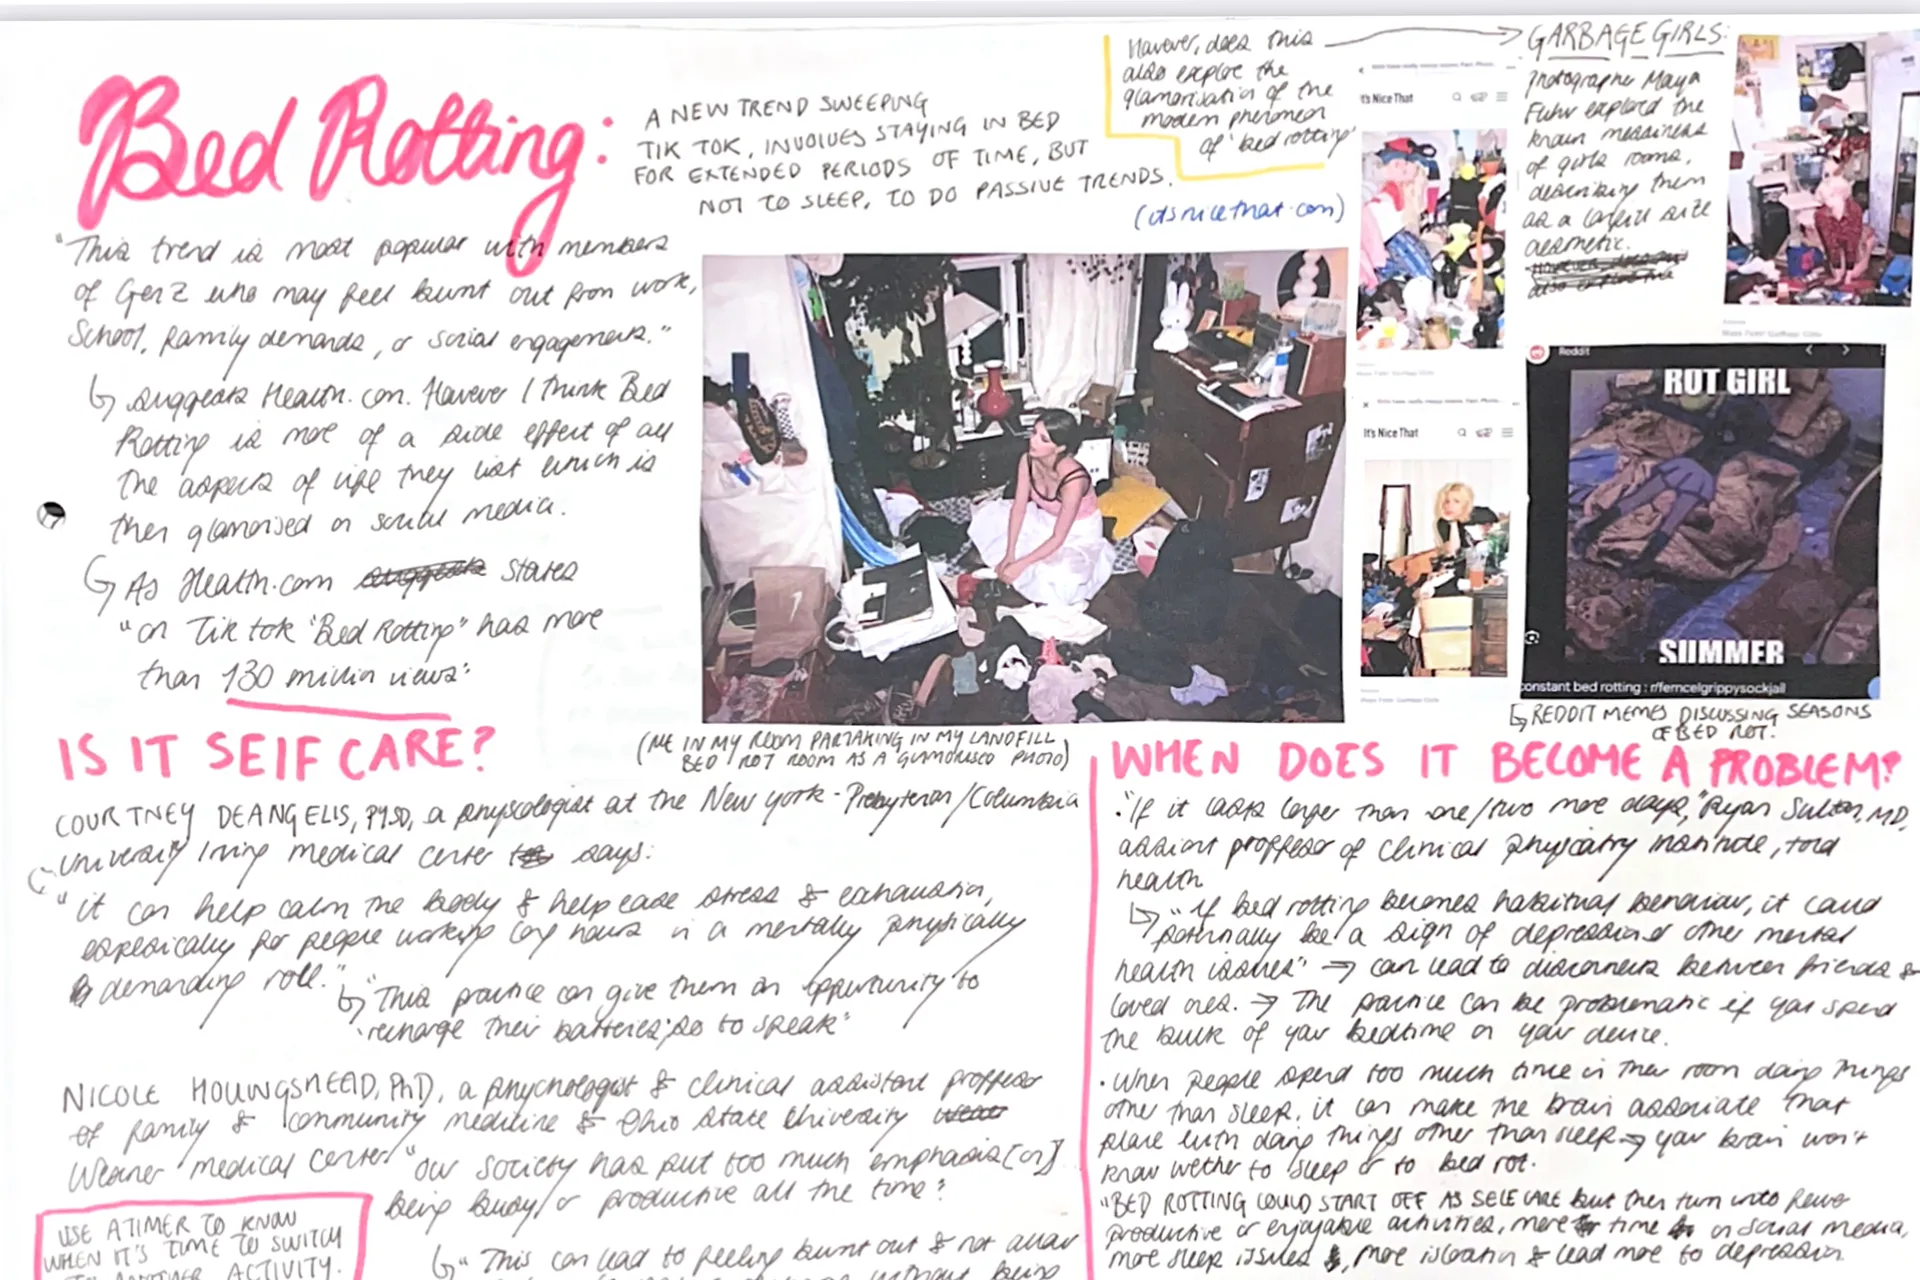 Bed Rotting:
A NEW TREND SWEEPING
TIK TOK, INVOLVES STAYING IN BED
FOR EXTENDED PERIODS OF TIME, BUT
NOT TO SLEEP, TO DO PASSIVE TRENDS.
"This trend is most popular with members
of Gen Z who may feel burnt out from work,
School, family demands, or social engagements."
↳ suggests Health.com. However I think Bed
Rotting is more of a side effect of all
the aspects of life they list which is
then glamorised on social media.
↳ As Health.com states
"on Tik tok 'Bed Rotting" has more
than 130 million views"
However, does this
also explore the
glamorisation of the
modern phenomen
of 'bed rotting'
(itsnicethat.com)
GARBAGE GIRLS:
Photographer Maya
Fuhr explored the
known messiness
of girls rooms,
describing them
as a landfill size
aesthetic.
It's Nice That
It's Nice That
Reddit
ROT GIRL
SUMMER
constant bed rotting : r/femcelgrippysockjail
↳ REDDIT MEMES DISCUSSING SEASONS
OF BED ROT.
(ME IN MY ROOM PARTAKING IN MY LANDFILL
BED ROT ROOM AS A GLAMORISED PHOTO)
IS IT SELF CARE?
COURTNEY DEANGELIS, PYSD, a physcologist at the New york - Presbyterian/Columbia
University Irving medical center says:
"it can help calm the body & help ease stress & exhaustion,
espesically for people working long hours in a mentally physically
demanding roll."
↳ "This practice can give them an oppurtunity to
recharge their batteries, so to speak"
NICOLE HOLLINGSHEAD, PhD, a phychologist & clinical assistant proffesor
of family & community medicine & Ohio State University
Wexner medical center "our society has put too much emphasis [on]
being busy/or productive all the time"
↳ "This can lead to feeling burnt out & not
without being
USE A TIMER TO KNOW
WHEN IT'S TIME TO SWITCH
TO ANOTHER ACTIVITY.
WHEN DOES IT BECOME A PROBLEM?
· "If it lasts longer than one/two more days," Ryan Sultan, MD,
assiant proffesor of clinical physicatry institute, told
health
↳ "If bed rotting becomes habitual behaviour, it could
potentially be a sign of depression & other mental
health issues" → can lead to disconnects between friends &
loved ones. → The practice can be problematic if you spend
the bulk of your bedtime on your device.
· When people spend too much time in their room doing things
other than sleep, it can make the brain associate that
place with doing things other than sleep → your brain won't
know wether to sleep or to bed rot.
"BED ROTTING COULD START OFF AS SELF CARE but then turn into fewer
productive or enjoyable activities, more time on social media,
more sleep issues, more isolation & lead more to depression.